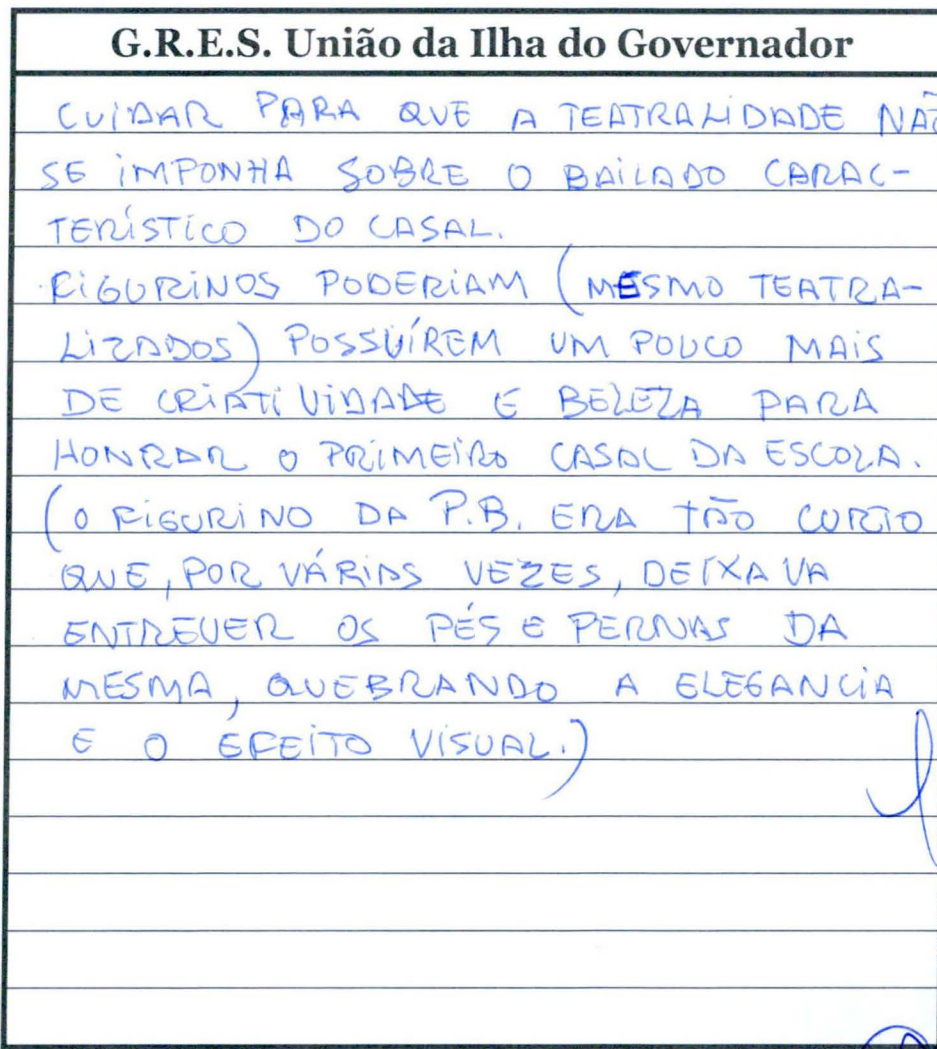 G.R.E.S. União da Ilha do Governador
CUIDAR PARA QUE A TEATRALIDADE NÃO
SE IMPONHA SOBRE O BAILADO CARAC-
TERÍSTICO DO CASAL.
FIGURINOS PODERIAM (MESMO TEATRA-
LIZADOS) POSSUÍREM UM POUCO MAIS
DE CRIATIVIDADE E BELEZA PARA
HONRAR O PRIMEIRO CASAL DA ESCOLA.
(O FIGURINO DA P.B. ERA TÃO CURTO
QUE, POR VÁRIAS VEZES, DEIXAVA
ENTREVER OS PÉS E PERNAS DA
MESMA, QUEBRANDO A ELEGANCIA
E O EFEITO VISUAL.)